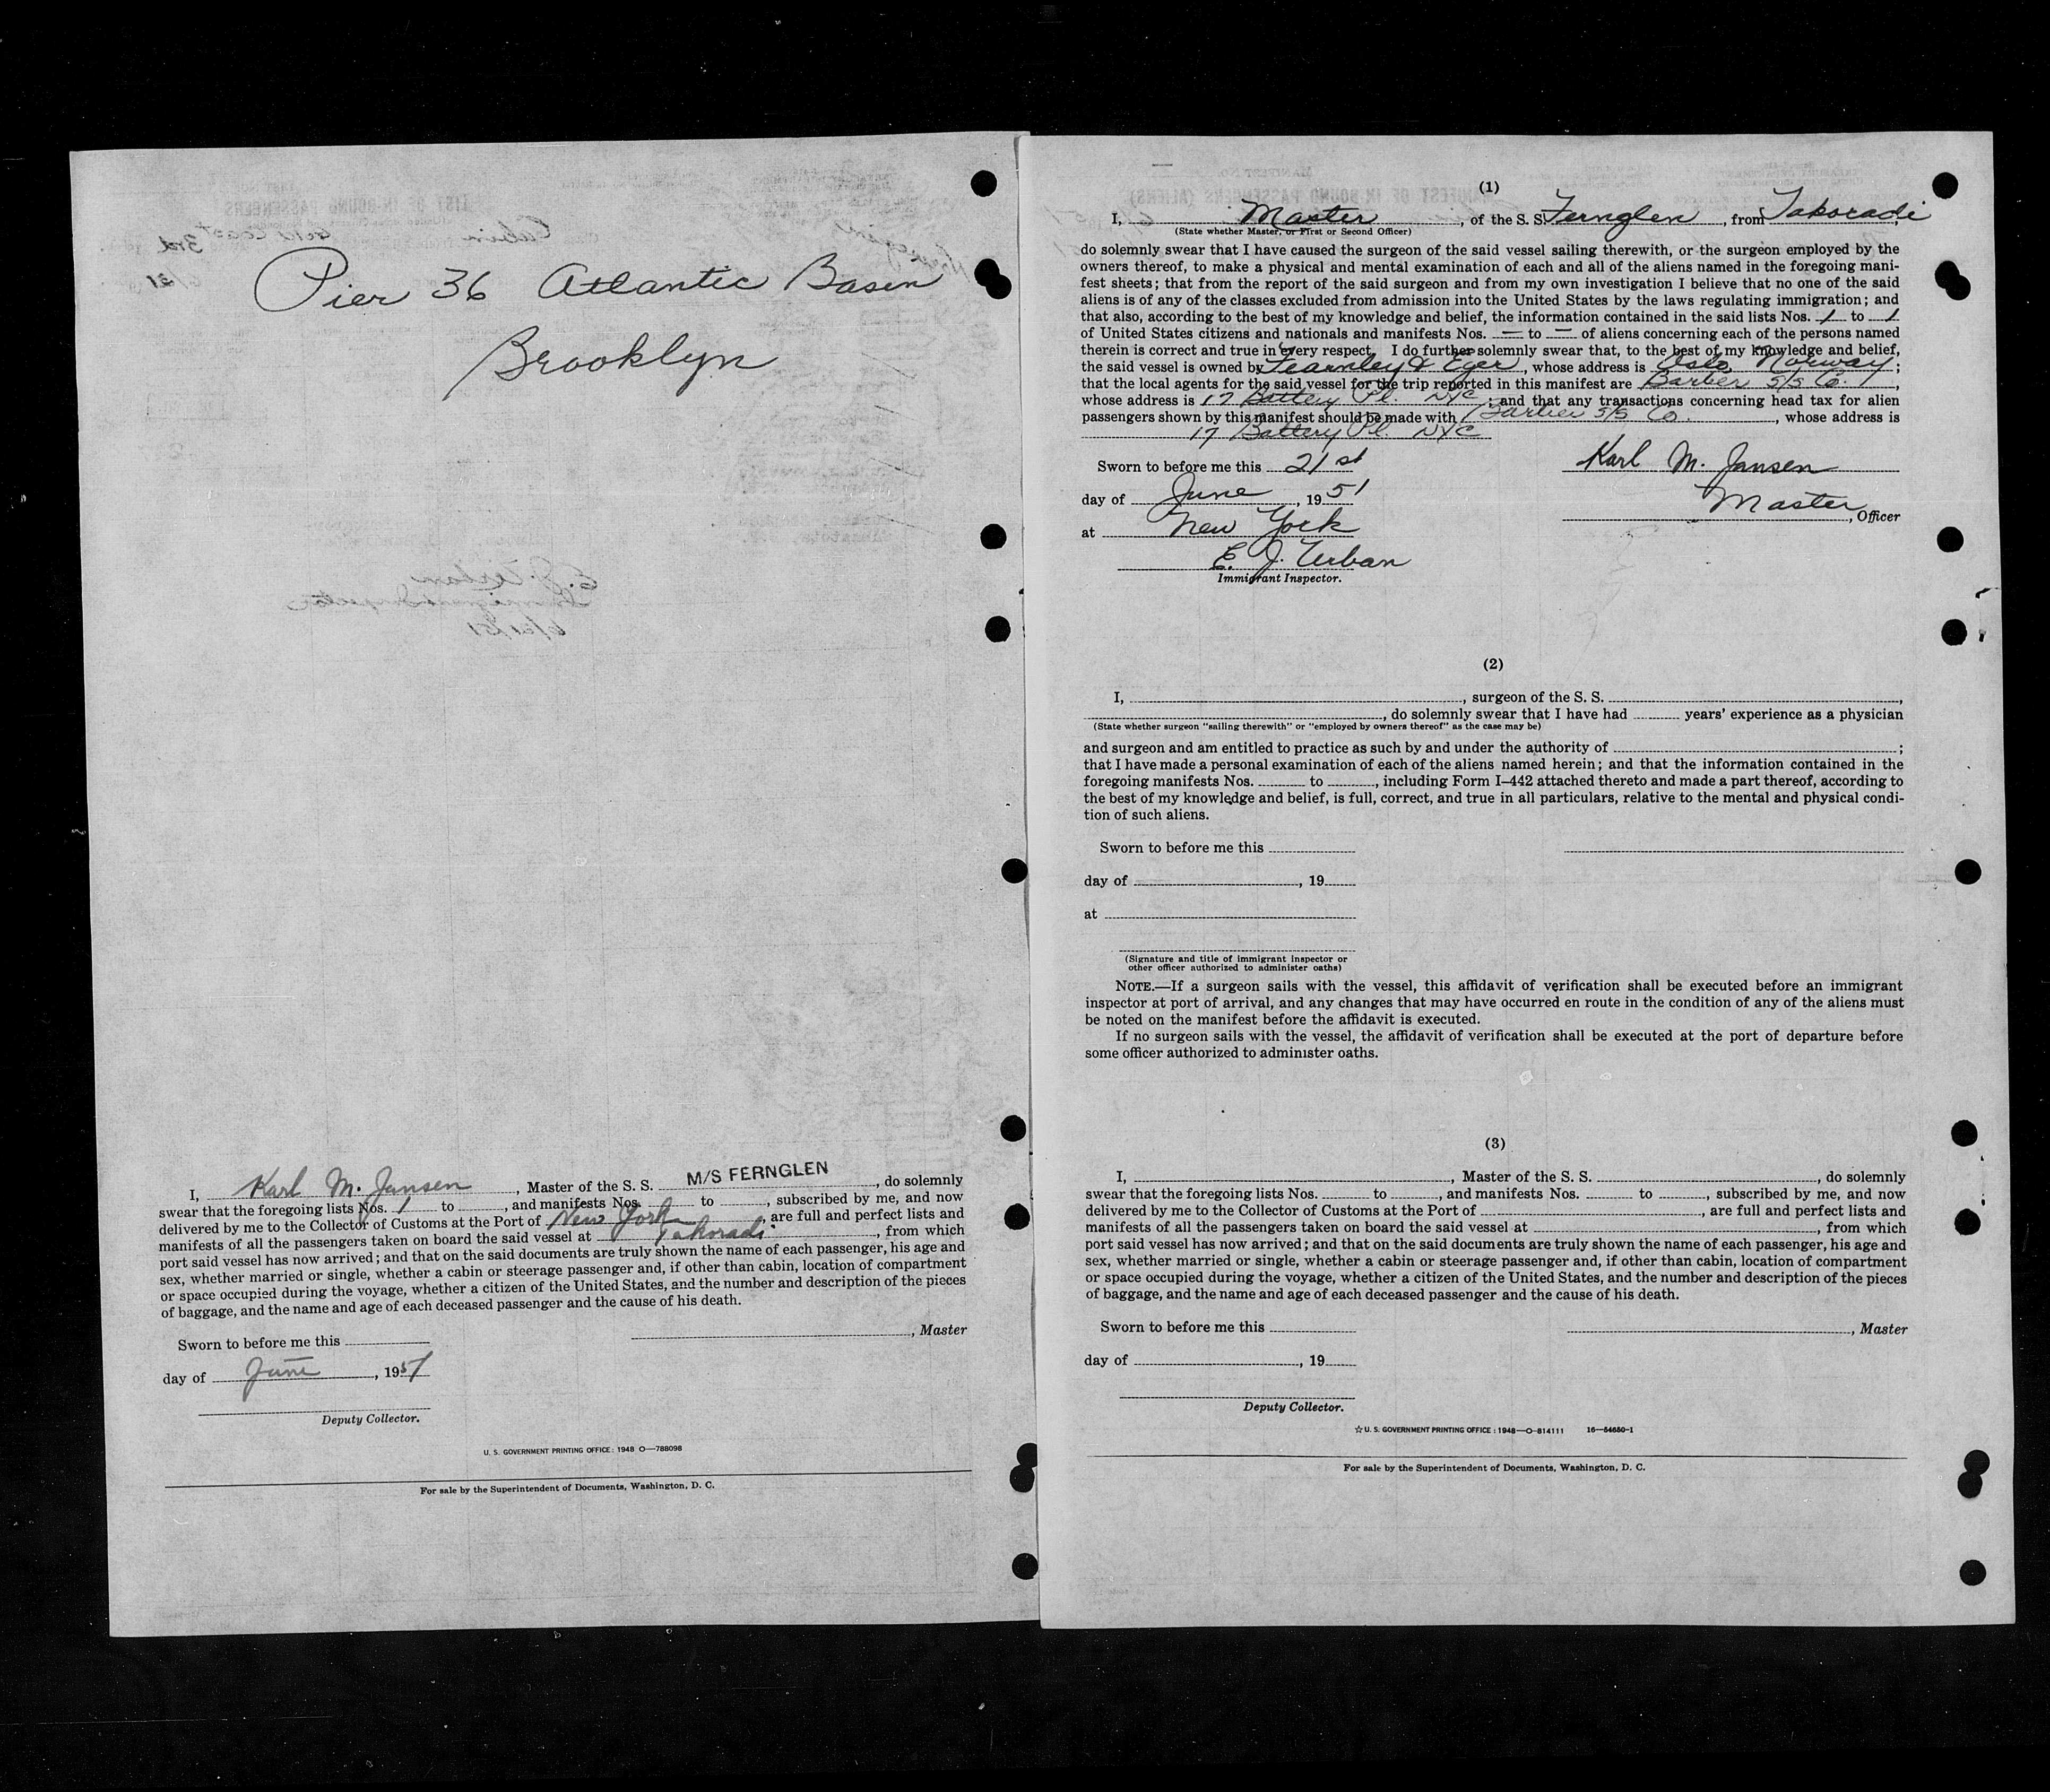 Pier 36 Atlantic Basin
Brooklyn
I, Karl M. Jansen, Master of the S. S. M/S FERNGLEN, do solemnly
swear that the foregoing lists Nos. 1 to , and manifests Nos. to , subscribed by me, and now
delivered by me to the Collector of Customs at the Port of New York, are full and perfect lists and
manifests of all the passengers taken on board the said vessel at Takoradi, from which
port said vessel has now arrived; and that on the said documents are truly shown the name of each passenger, his age and
sex, whether married or single, whether a cabin or steerage passenger and, if other than cabin, location of compartment
or space occupied during the voyage, whether a citizen of the United States, and the number and description of the pieces
of baggage, and the name and age of each deceased passenger and the cause of his death.
Sworn to before me this
, Master
day of June, 1951
Deputy Collector.
U. S. GOVERNMENT PRINTING OFFICE: 1948 O—788098
For sale by the Superintendent of Documents, Washington, D. C.
(1)
I, Master, of the S. S. Fernglen, from Takoradi,
(State whether Master, or First or Second Officer)
do solemnly swear that I have caused the surgeon of the said vessel sailing therewith, or the surgeon employed by the
owners thereof, to make a physical and mental examination of each and all of the aliens named in the foregoing mani-
fest sheets; that from the report of the said surgeon and from my own investigation I believe that no one of the said
aliens is of any of the classes excluded from admission into the United States by the laws regulating immigration; and
that also, according to the best of my knowledge and belief, the information contained in the said lists Nos. 1 to 1
of United States citizens and nationals and manifests Nos. — to — of aliens concerning each of the persons named
therein is correct and true in every respect. I do further solemnly swear that, to the best of my knowledge and belief,
the said vessel is owned by Fearnley & Eger, whose address is Oslo, Norway;
that the local agents for the said vessel for the trip reported in this manifest are Barber S/S Co.,
whose address is 17 Battery Pl. NYC; and that any transactions concerning head tax for alien
passengers shown by this manifest should be made with Barber S/S Co., whose address is
17 Battery Pl. NYC
Sworn to before me this 21st
Karl M. Jansen
day of June, 1951
Master, Officer
at New York
E. J. Urban
Immigrant Inspector.
(2)
I, , surgeon of the S. S. ,
, do solemnly swear that I have had years' experience as a physician
(State whether surgeon "sailing therewith" or "employed by owners thereof" as the case may be)
and surgeon and am entitled to practice as such by and under the authority of ;
that I have made a personal examination of each of the aliens named herein; and that the information contained in the
foregoing manifests Nos. to , including Form I–442 attached thereto and made a part thereof, according to
the best of my knowledge and belief, is full, correct, and true in all particulars, relative to the mental and physical condi-
tion of such aliens.
Sworn to before me this
day of , 19
at
(Signature and title of immigrant inspector or
other officer authorized to administer oaths)
NOTE.—If a surgeon sails with the vessel, this affidavit of verification shall be executed before an immigrant
inspector at port of arrival, and any changes that may have occurred en route in the condition of any of the aliens must
be noted on the manifest before the affidavit is executed.
If no surgeon sails with the vessel, the affidavit of verification shall be executed at the port of departure before
some officer authorized to administer oaths.
(3)
I, , Master of the S. S. , do solemnly
swear that the foregoing lists Nos. to , and manifests Nos. to , subscribed by me, and now
delivered by me to the Collector of Customs at the Port of , are full and perfect lists and
manifests of all the passengers taken on board the said vessel at , from which
port said vessel has now arrived; and that on the said documents are truly shown the name of each passenger, his age and
sex, whether married or single, whether a cabin or steerage passenger and, if other than cabin, location of compartment
or space occupied during the voyage, whether a citizen of the United States, and the number and description of the pieces
of baggage, and the name and age of each deceased passenger and the cause of his death.
Sworn to before me this
, Master
day of , 19
Deputy Collector.
☆ U. S. GOVERNMENT PRINTING OFFICE: 1948—O-814111 16—54650-1
For sale by the Superintendent of Documents, Washington, D. C.